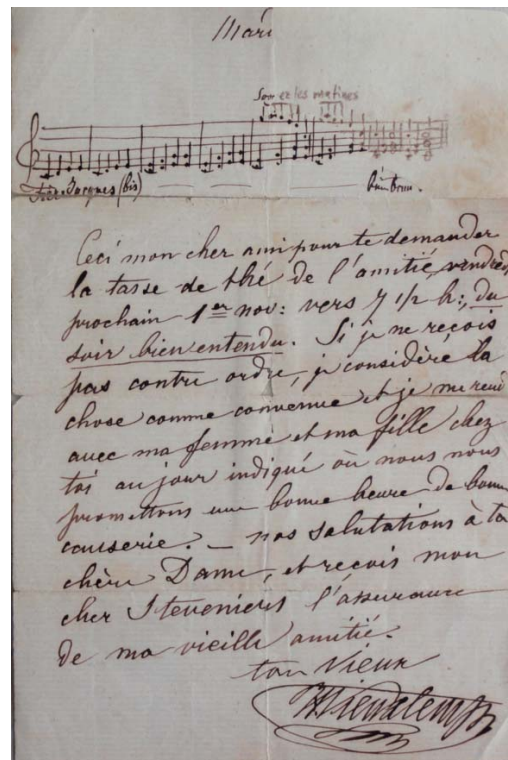 Mari
Sonnez les matines
Frère Jacques (bis)
bim boum.
Ceci mon cher ami pour te demander
la tasse de thé de l'amitié, vendredi
prochain 1er nov: vers 7 1/2 h:, du
soir bien entendu. Si je ne reçois
pas contre ordre, je considère la
chose comme convenue et je me rend
avec ma femme et ma fille chez
toi au jour indiqué où nous nous
promettons une bonne heure de bonne
causerie. — nos salutations à ta
chère Dame, et reçois mon
cher Steveniers l'assurance
de ma vieille amitié.
ton vieux
HVieuxtemps